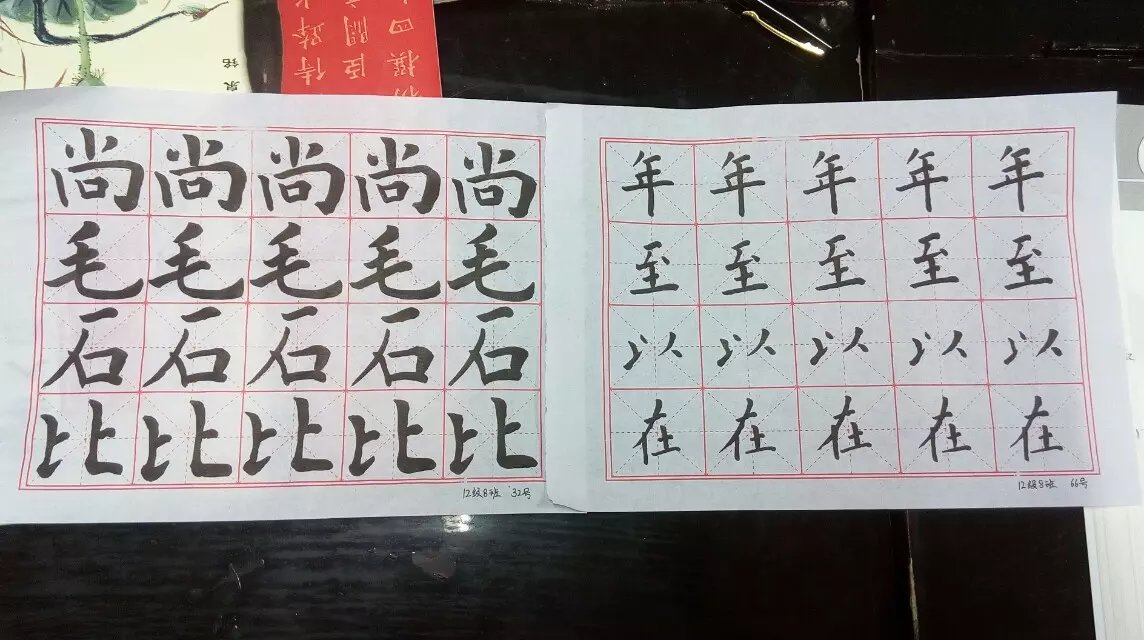 尚尚尚尚尚
毛毛毛毛毛
石石石石石
比比比比比
12级8班 32号
年年年年年
至至至至至
以以以以以
在在在在在
12级8班 66号